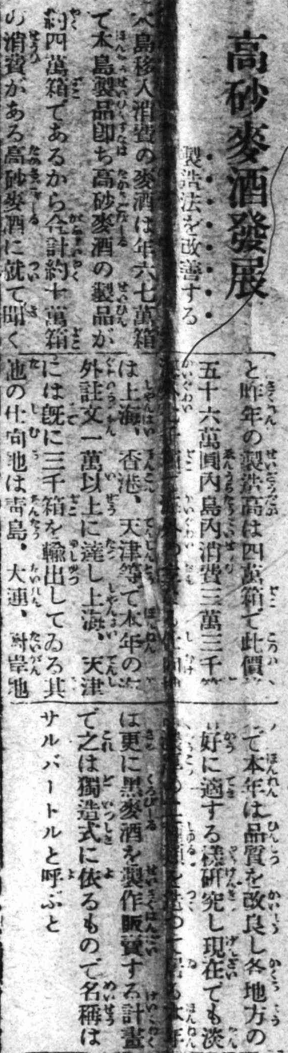 高砂麥酒發展
製造法を改善する
本島移入消費の麥酒は年六七萬箱
で本島製品卽ち高砂麥酒の製品が
約四萬箱であるから合計約十萬箱
の消費がある高砂麥酒に就て聞く
と昨年の製造高は四萬箱で此價
五十六萬圓內島內消費三萬三千
は上海、香港、天津等で本年の
外註文一萬以上に達し上海、天津
には旣に三千箱を輸出してゐる其
他の仕向地は靑島、大連、對岸地
で本年は品質を改良し各地方の
好に適する樣硏究し現在でも淡
は更に黑麥酒を製作販賣する計畫
で之は獨造式に依るもので名稱は
サルバートルと呼ぶと